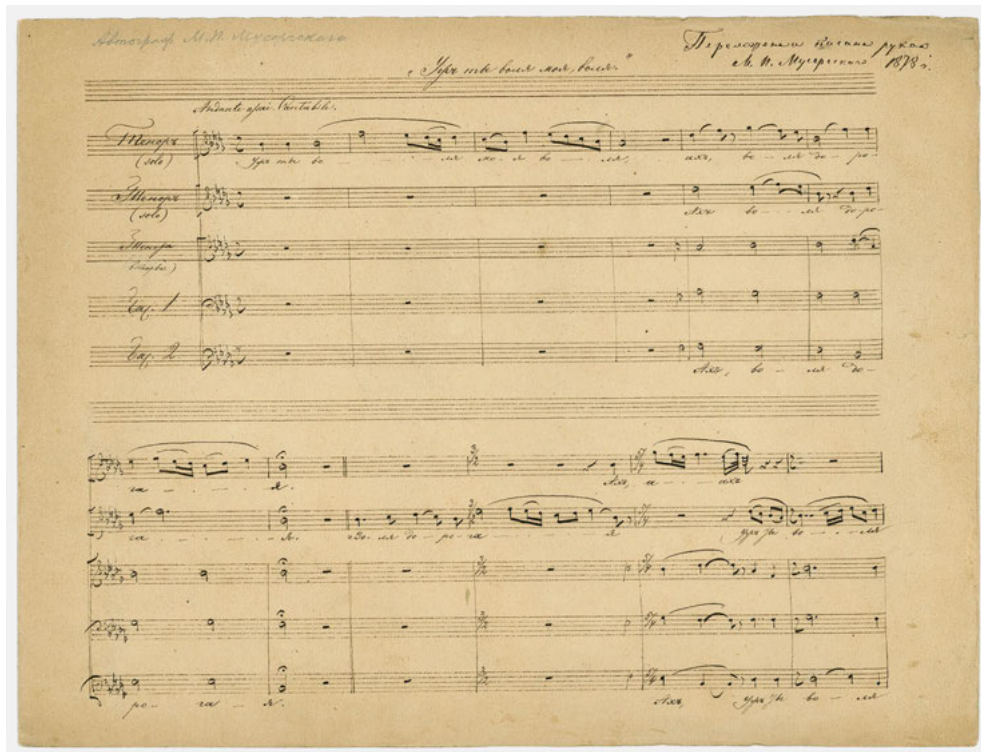 Автограф М. П. Мусоргского
М. П. Мусоргского 1878 г.
„Ужъ ты воля моя, воля“
Andante assai. Cantabile.
Теноръ
(solo)
Ужъ ты во - - - ля мо - я во - - ля, ахъ, во - ля до - ро -
Теноръ
(solo)
Ахъ во - - ля до - ро -
Тенора
Бас. 1
Бас. 2
Ахъ, во - ля до -
га - - - - я.
Ахъ,
га - - - - я. Во - ля до - ро - га - - - я Ужъ ты во - - - ля
ро - га - я. Ахъ, Ужъ ты во - ля